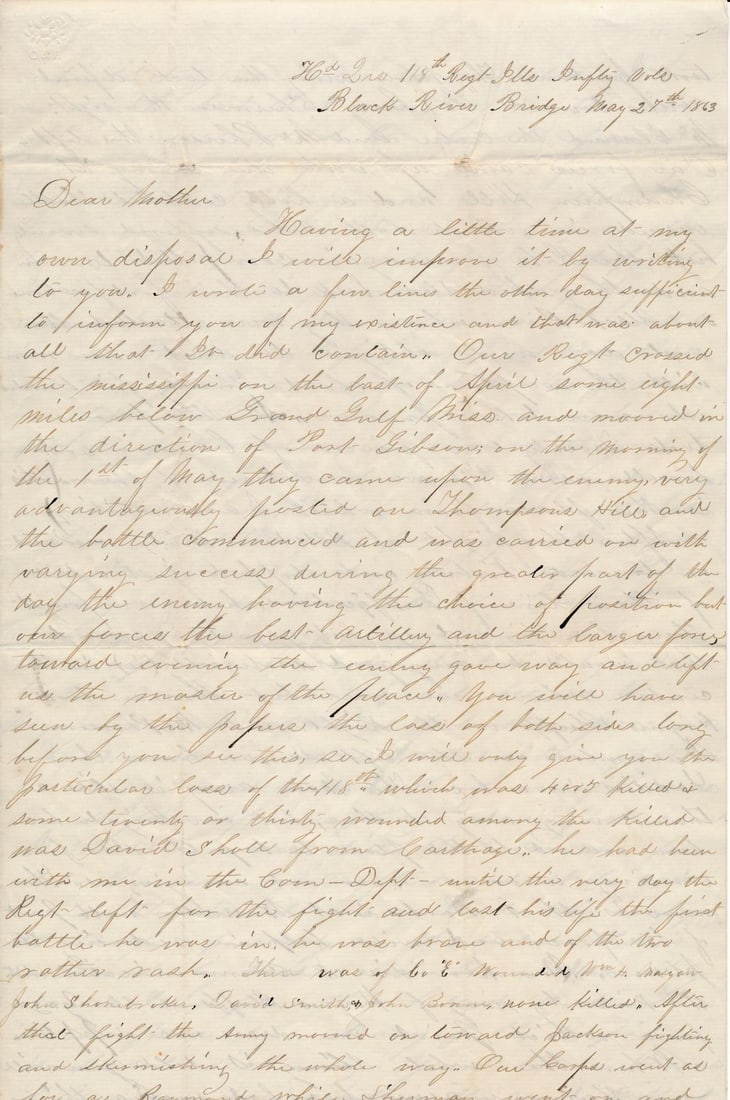 Hd Qrs 118th Regt Ills Infty Vols
Black River Bridge May 27th 1863
Dear Mother
Having a little time at my
own disposal I will improve it by writing
to you. I wrote a few lines the other day sufficient
to inform you of my existence and that was about
all that it did contain. Our Regt crossed
the mississippi on the last of April some eight
miles below Grand Gulf Miss. and mooved in
the direction of Port Gibson; on the morning of
the 1st of May they came upon the enemy very
advantageously posted on Thompsons Hill, and
the battle commenced and was carried on with
varying success during the greater part of the
day the enemy having the choice of position but
our forces the best artillery and the larger force,
toward evening the enemy gave way and left
us the master of the place. You will have
seen by the papers the loss of both sides long
before you see this, so I will only give you the
particular loss of the 118th which was 4 or 5 killed &
some twenty or thirty wounded among the killed
was David Sholl from Carthage. he had been
with me in the Com-Dept- until the very day the
Regt left for the fight and lost his life the first
battle he was in. he was brave and of the two
rather rash. There was of Co "E" Wounded, Wm
John Shonebroker, David Smith, & John none killed. After
that fight the Army mooved on toward Jackson fighting
and skirmishing the whole way. Our Corps went as
far as Raymond while Sherman went on and